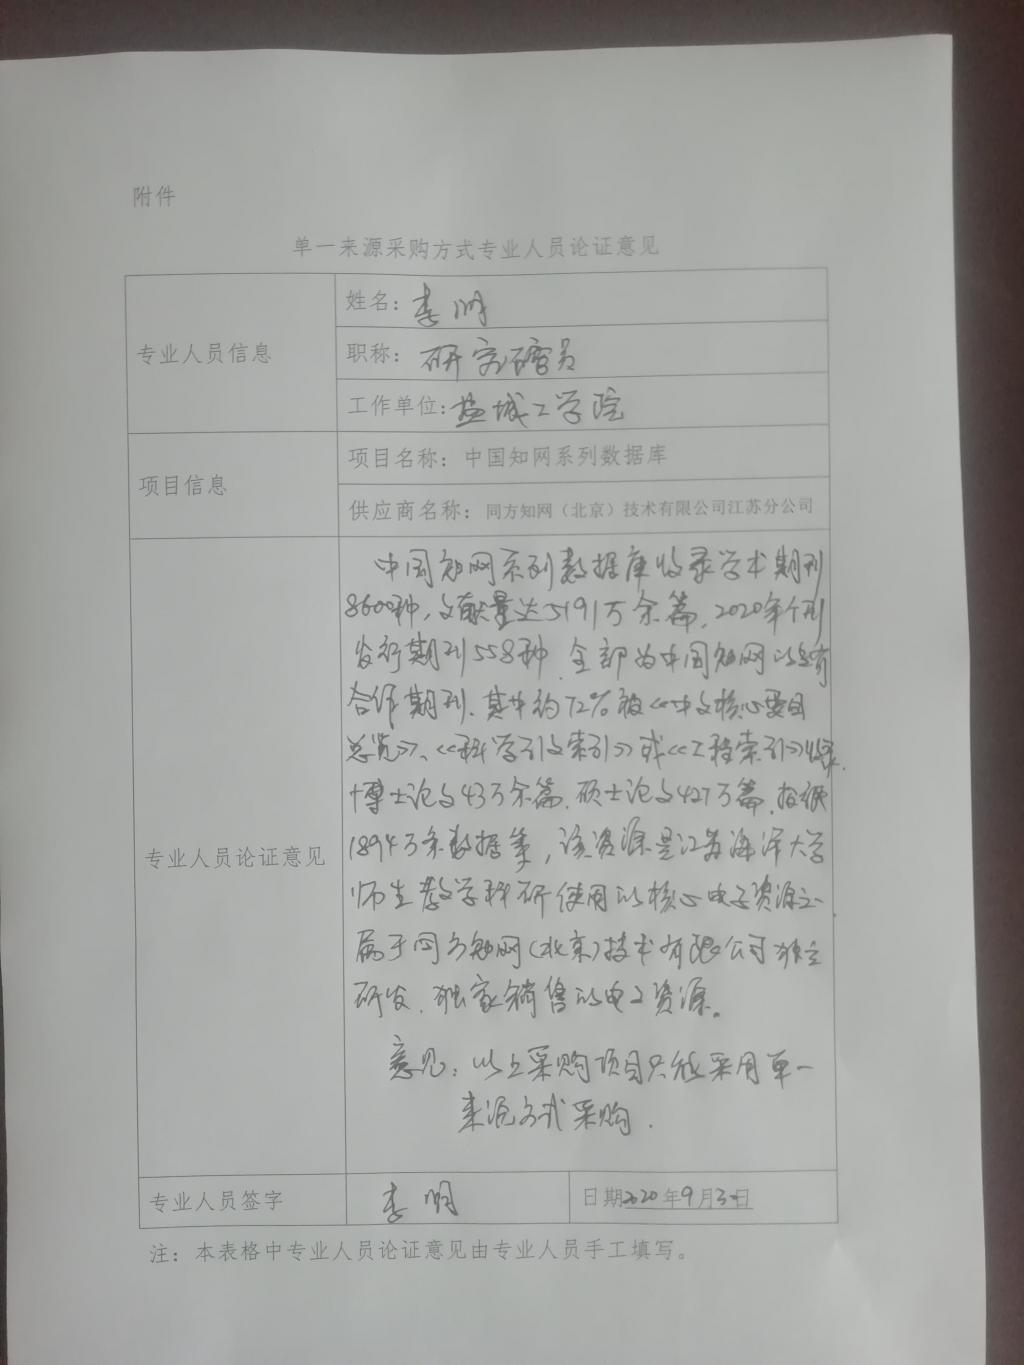 附件
单一来源采购方式专业人员论证意见
专业人员信息
姓名：李明
职称：研究馆员
工作单位：盐城工学院
项目信息
项目名称：中国知网系列数据库
供应商名称：同方知网（北京）技术有限公司江苏分公司
专业人员论证意见
中国知网系列数据库收录学术期刊
8600种，文献量达5191万余篇，2020年创刊
发行期刊558种，全部为中国知网的独有
合作期刊，其中约72%被《中文核心要目
总览》、《科学引文索引》或《工程索引》收录，
博士论文43万余篇，硕士论文427万篇，报纸
1894万条数据等，该资源是江苏海洋大学
师生教学科研使用的核心电子资源之一，
属于同方知网（北京）技术有限公司独立
研发、独家销售的电子资源。
意见：以上采购项目只能采用单一
来源方式采购.
专业人员签字
李明
日期2020年9月30日
注：本表格中专业人员论证意见由专业人员手工填写。